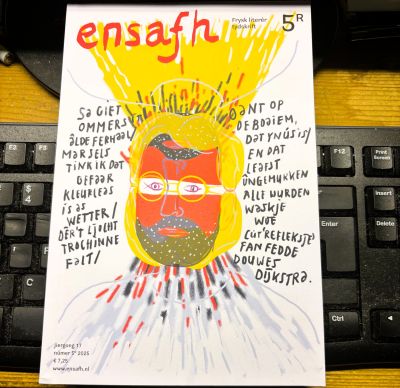 ensafh
Frysk literêr
tydskrift
5R
SA GIET
OMMERS
ÂLDE FERHAAL/
MAR SELS
TINK IK DAT
DEFOAR
KLEURLEAS
IS AS
WETTER/
DÊR'T LJOCHT
TROCHINNE
FALT/
OANT OP
DE BOAIEM,
DAT YN ÚS IS/
EN DAT
LEAFST
ÛNGEMUKKEN
ALLE WURDEN
WASKJE
WOE
(ÚT 'REFLEKSJE')
FAN FEDDE
DOUWES
DIJKSTRA.
jiergong 17
nûmer 5R 2025
€ 7,25
www.ensafh.nl
$
4
F9
F12
Print
Screen
Insert
Delete
Ctrl